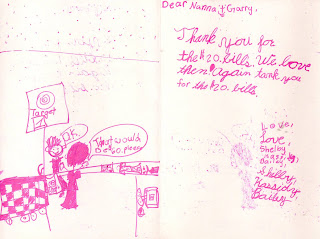 Target
O.K.
That would
be $60 please
Dear Nanna & Grarry,
Thank you for
the $20. bills. We love
them! Again tank you
for the $20. bills.
Love,
Love,
Shelby
Kassidy
Bailey
Shelby,
Kassidy,
Bailey